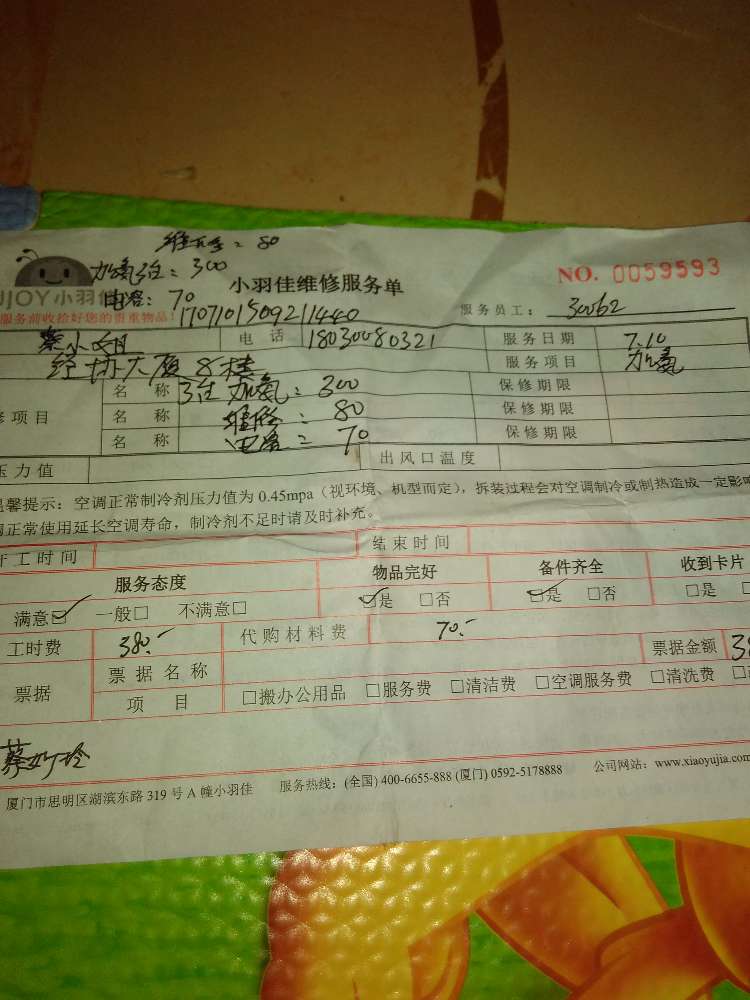 维修：80
加氨3台：300
电容：70
JJOY小羽佳
小羽佳维修服务单
NO. 0059593
服务前收拾好您的贵重物品！
1707101509211440
服务员工：30062
蔡小姐 电 话 18030080321 服务日期 7.10
经协大厦8楼 服务项目 加氨
名 称 3台加氨：300 保修期限
修项目 名 称 维修：80 保修期限
名 称 电容：70 保修期限
压力值 出风口温度
温馨提示：空调正常制冷剂压力值为 0.45mpa（视环境、机型而定），拆装过程会对空调制冷或制热造成一定影响
调正常使用延长空调寿命，制冷剂不足时请及时补充。
开工时间 结束时间
服务态度 物品完好 备件齐全 收到卡片
满意☑ 一般□ 不满意□ ☑是 □否 ☑是 □否 □是
工时费 380.- 代购材料费 70.-
票据 票据名称 票据金额 38
项 目 □搬办公用品 □服务费 □清洁费 □空调服务费 □清洗费
厦门市思明区湖滨东路 319 号 A 幢小羽佳 服务热线：(全国) 400-6655-888 (厦门) 0592-5178888 公司网站：www.xiaoyujia.com